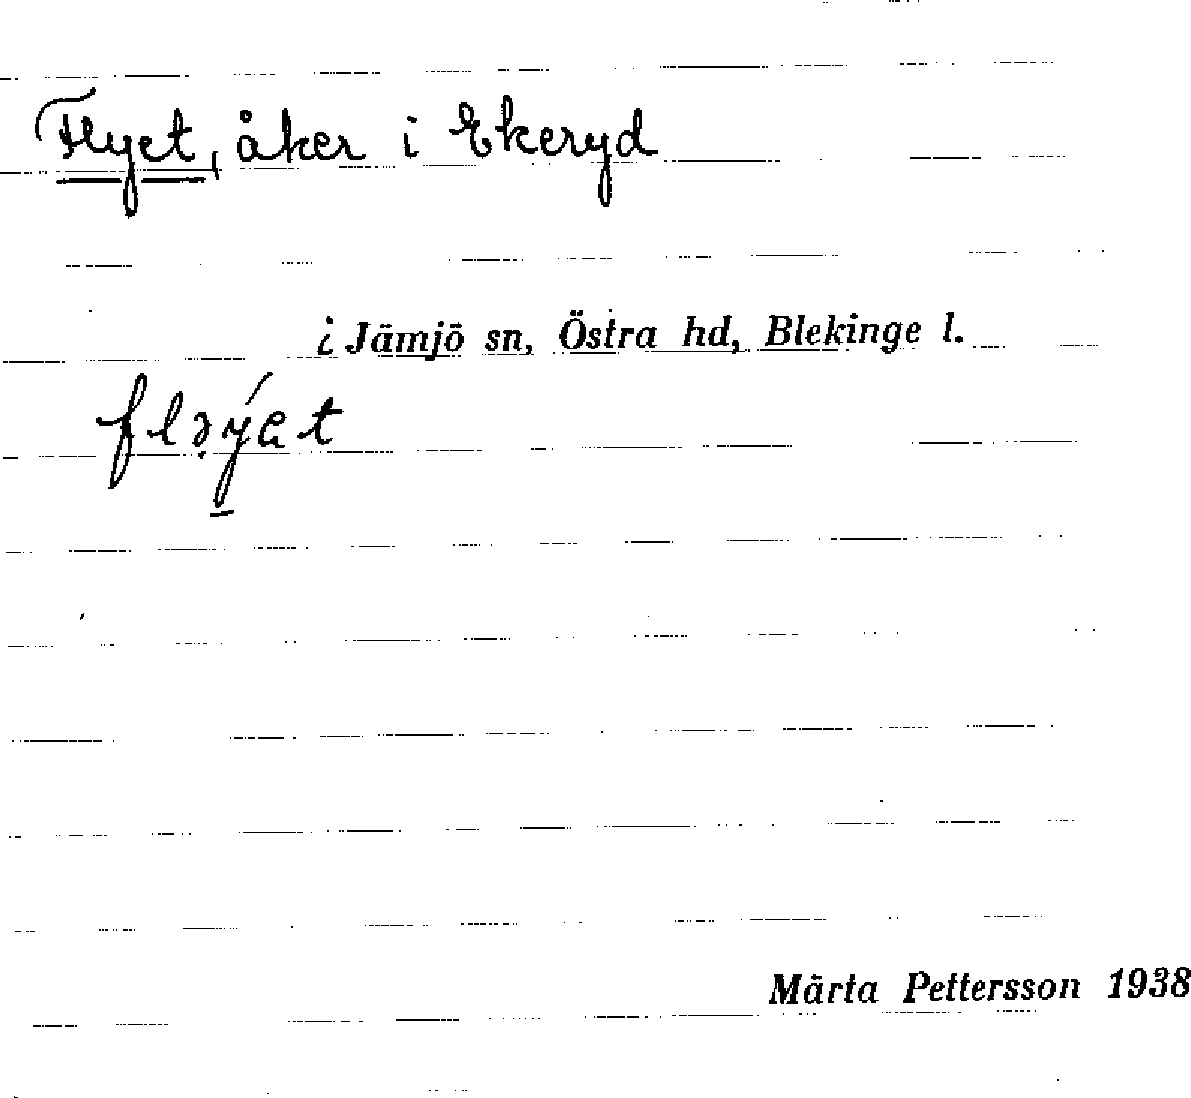 Flyet, åker i Ekeryd
i Jämjö sn, Östra hd, Blekinge l.
fləyet
Märta Pettersson 1938